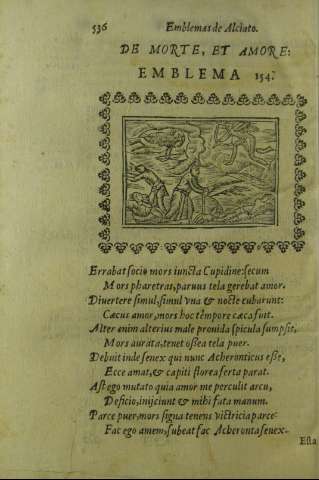 536 Emblemas de Alciato.
DE MORTE, ET AMORE:
EMBLEMA 154.
Errabat socio mors iuncta Cupidine: secum
Mors pharetras, paruus tela gerebat amor.
Diuertere simul, simul vna & nocte cubarunt:
Cæcus amor, mors hoc tempore cæca fuit.
Alter enim alterius male prouida spicula sumpsit,
Mors aurata, tenet ossea tela puer.
Debuit inde senex qui nunc Acheronticus esse,
Ecce amat, & capiti florea serta parat.
Ast ego mutato quia amor me perculit arcu,
Deficio, inijciunt & mihi fata manum.
Parce puer, mors signa tenens victricia parce:
Fac ego amem, subeat fac Acheronta senex.
Esta